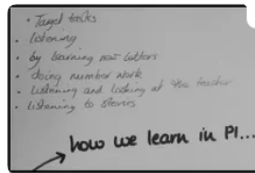 Target tasks
listening
by learning new letters
doing number work
listening and looking at the teacher
listening to stories
how we learn in P1...